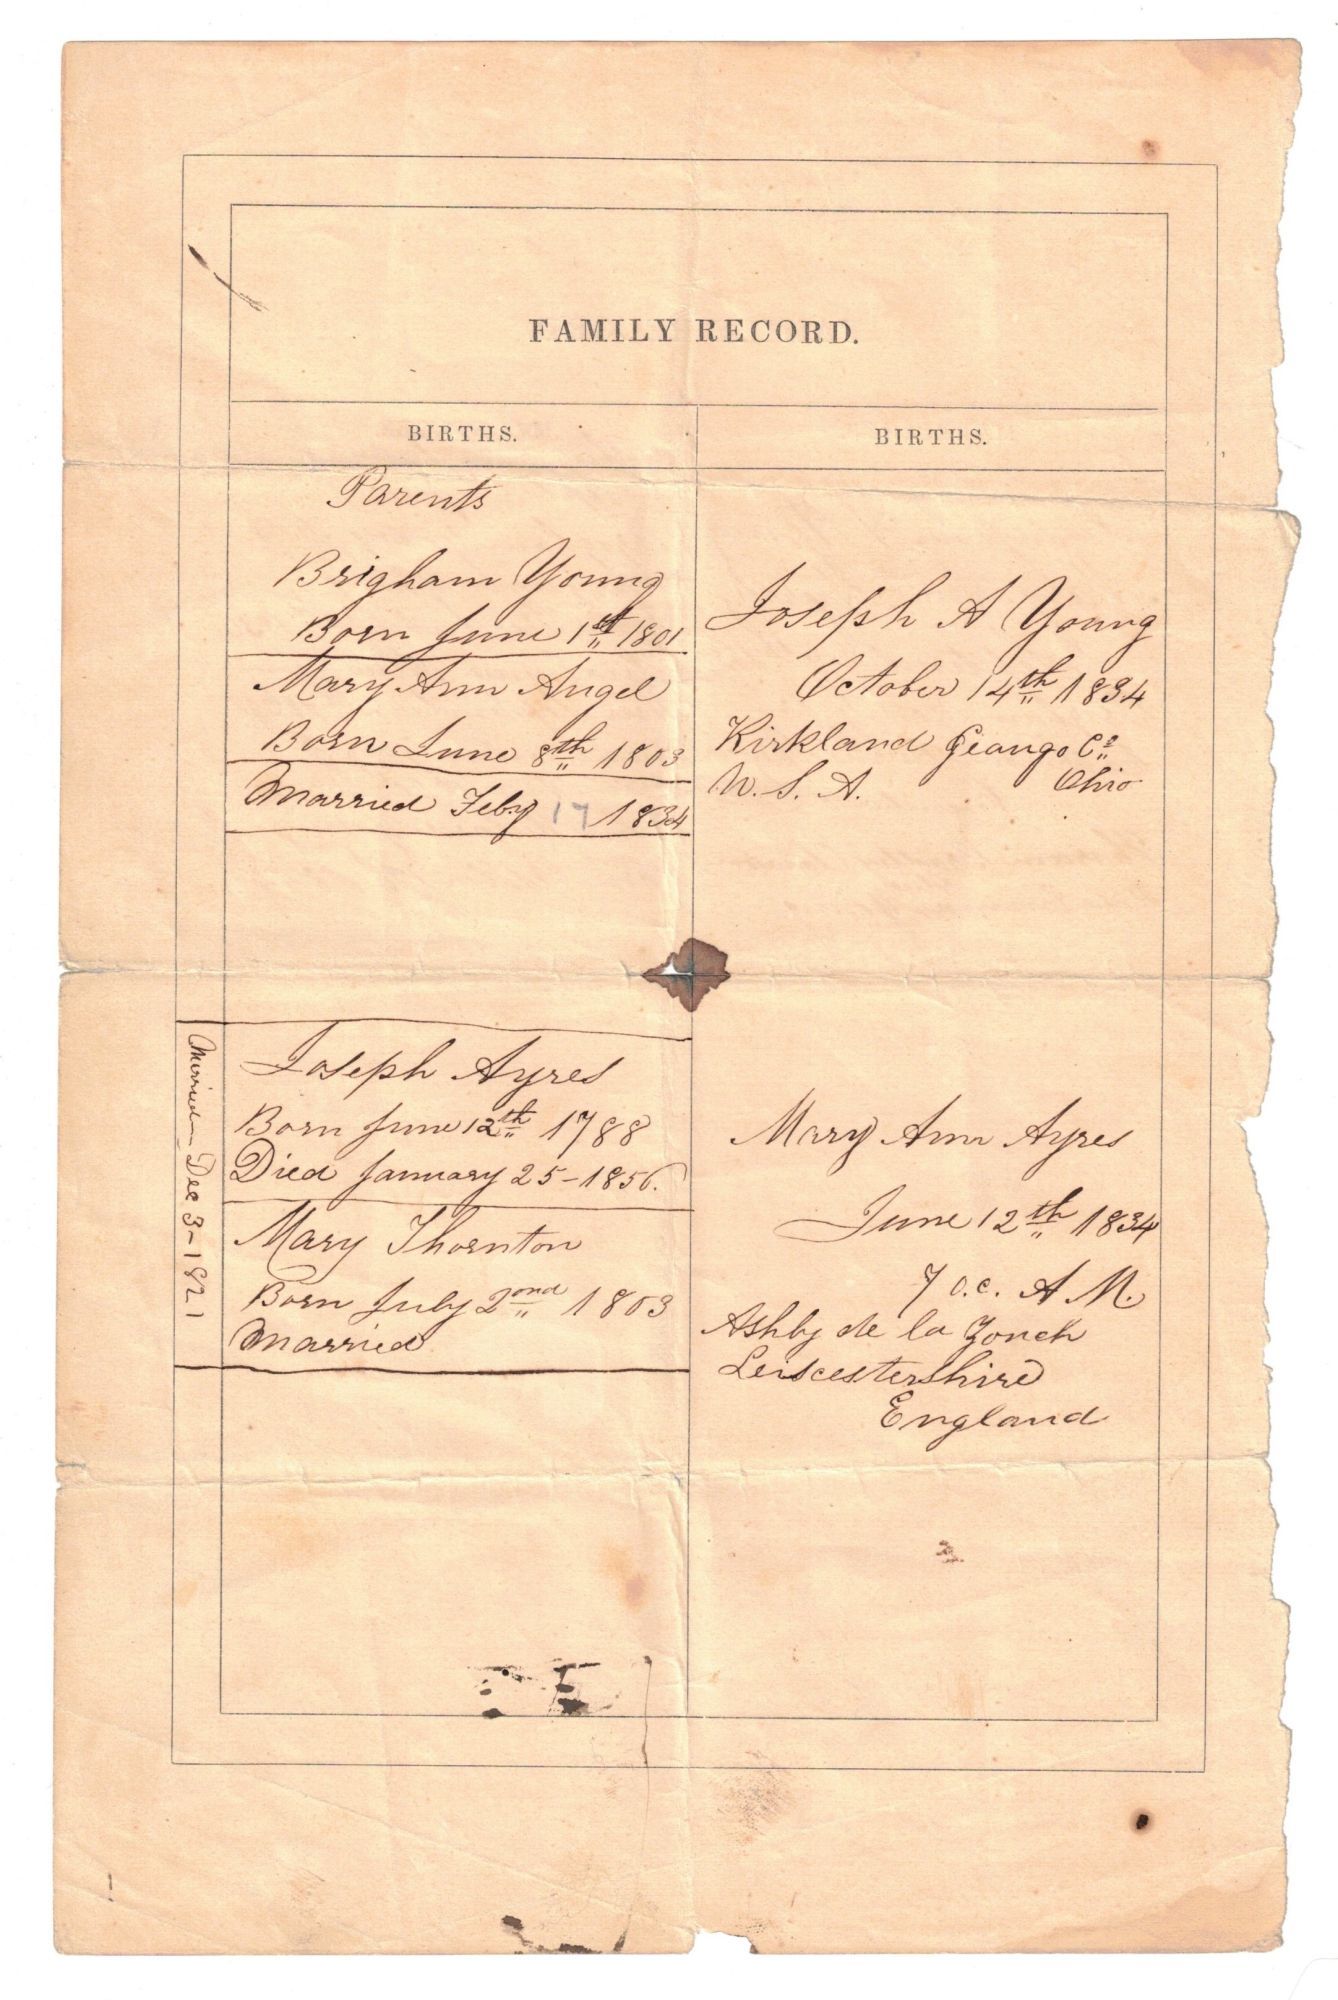 FAMILY RECORD.
BIRTHS.
Parents
Brigham Young
Born June 1st 1801
Mary Ann Angel
Born June 8th 1803
Married Feby 17 1834
Joseph Ayres
Born June 12th 1788
Died January 25-1856.
Mary Thornton
Born July 2ond 1803
Married
Married Dec 3-1821
BIRTHS.
Joseph A Young
October 14th 1834
Kirkland Geaugo Co
U. S. A. Ohio
Mary Ann Ayres
June 12th 1834
7 o.c. A M.
Ashby de la Zouch
Leiscestershire
England